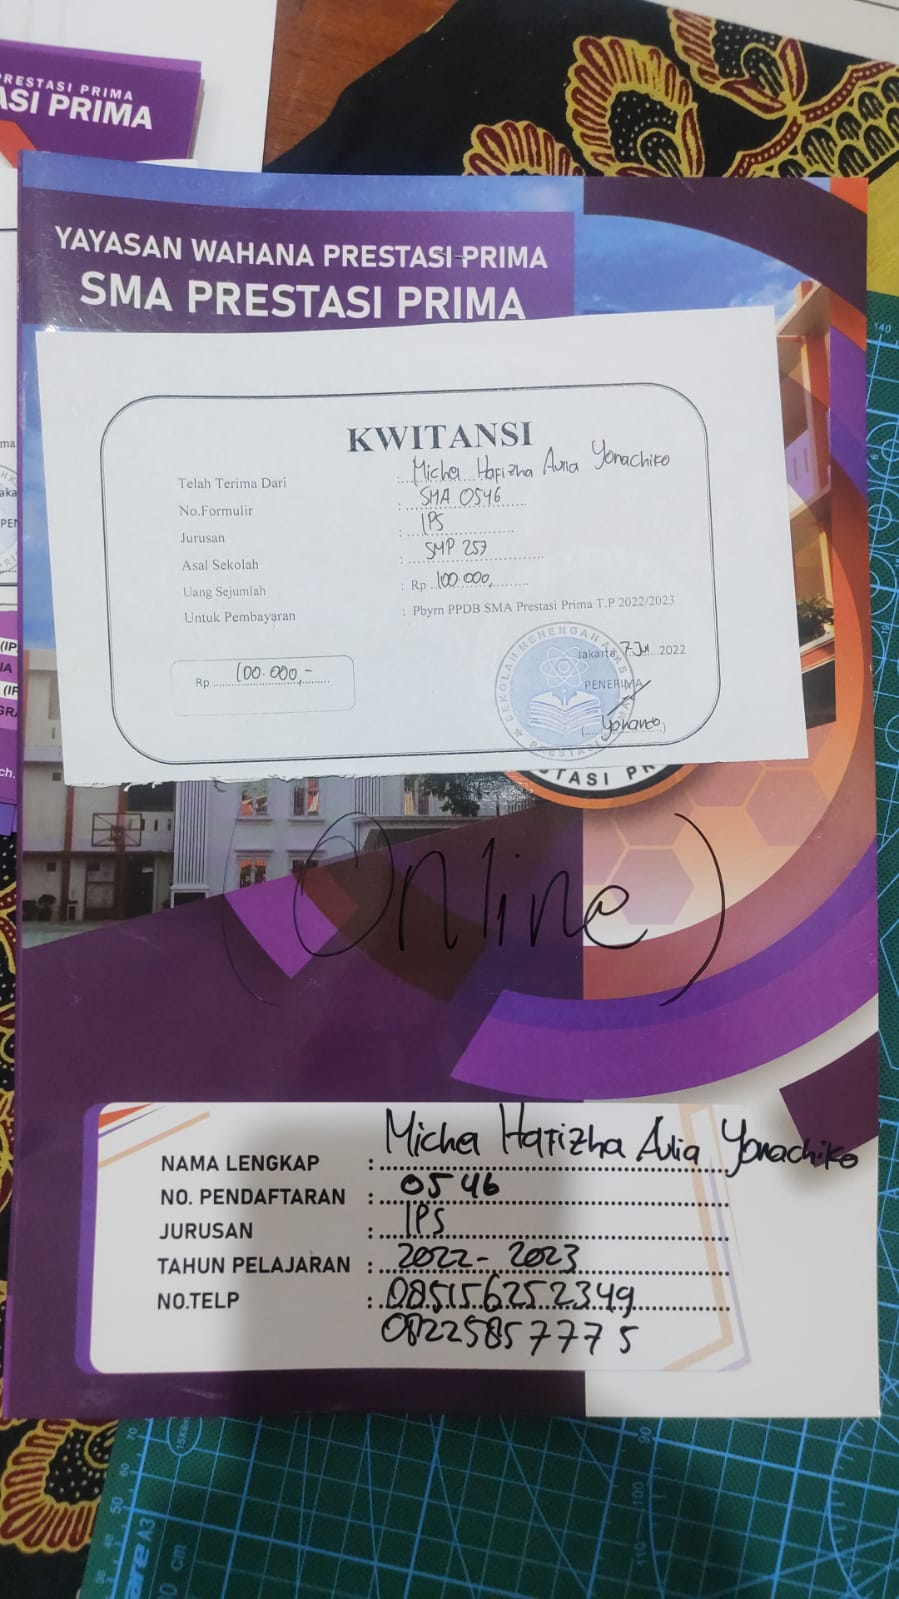 PRESTASI PRIMA
ASI PRIMA
YAYASAN WAHANA PRESTASI PRIMA
SMA PRESTASI PRIMA
KWITANSI
Telah Terima Dari : Micha Hafizha Aulia Yonachiko
No.Formulir : SMA 0546
Jurusan : IPS
Asal Sekolah : SMP 257
Uang Sejumlah : Rp 100.000,
Untuk Pembayaran : Pbyrn PPDB SMA Prestasi Prima T.P 2022/2023
Rp 100.000,-
Jakarta, 7 Jul 2022
PENERIMA
SEKOLAH MENENGAH ATAS
PRESTASI
TASI PR
(Online)
NAMA LENGKAP : Micha Hafizha Aulia Yonachiko
NO. PENDAFTARAN : 0546
JURUSAN : IPS
TAHUN PELAJARAN : 2022 - 2023
NO.TELP : 085156252349
082258577775
140
90
100
110
60
50
A3
cm